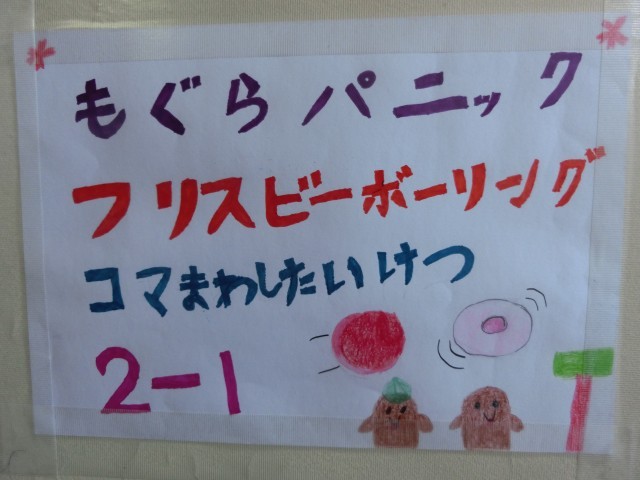 もぐらパニック
フリスビーボーリング
コマまわしたいけつ
2-1